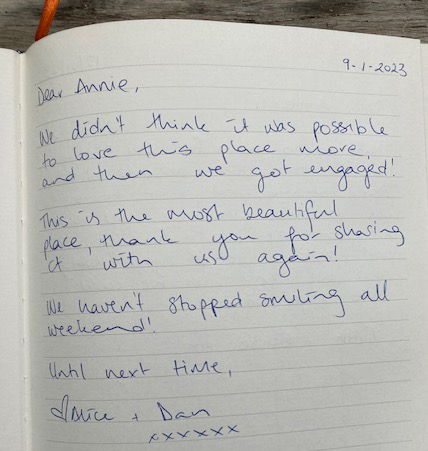 9-1-2023
Dear Annie,
We didn't think it was possible
to love this place more,
and then we got engaged!
This is the most beautiful
place, thank you for sharing
it with us again!
We haven't stopped smiling all
weekend!
Until next time,
+ Dan
xxxxxx